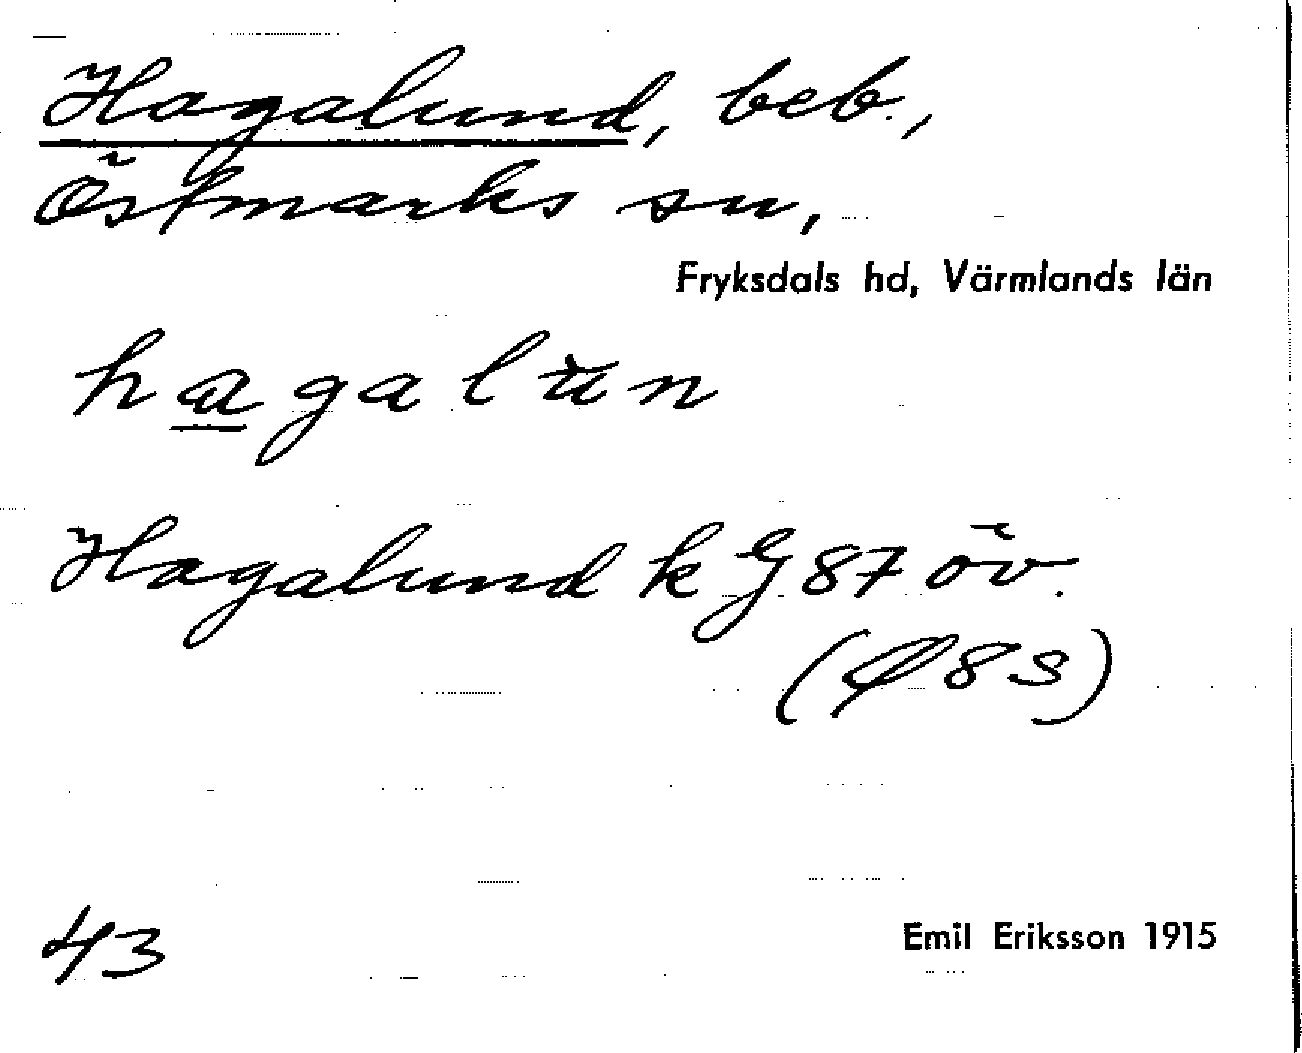 Hagalund, beb.,
Östmarks sn,
Fryksdals hd, Värmlands län
hagalun
Hagalund k G 87 öv.
(P 8 S)
43
Emil Eriksson 1915